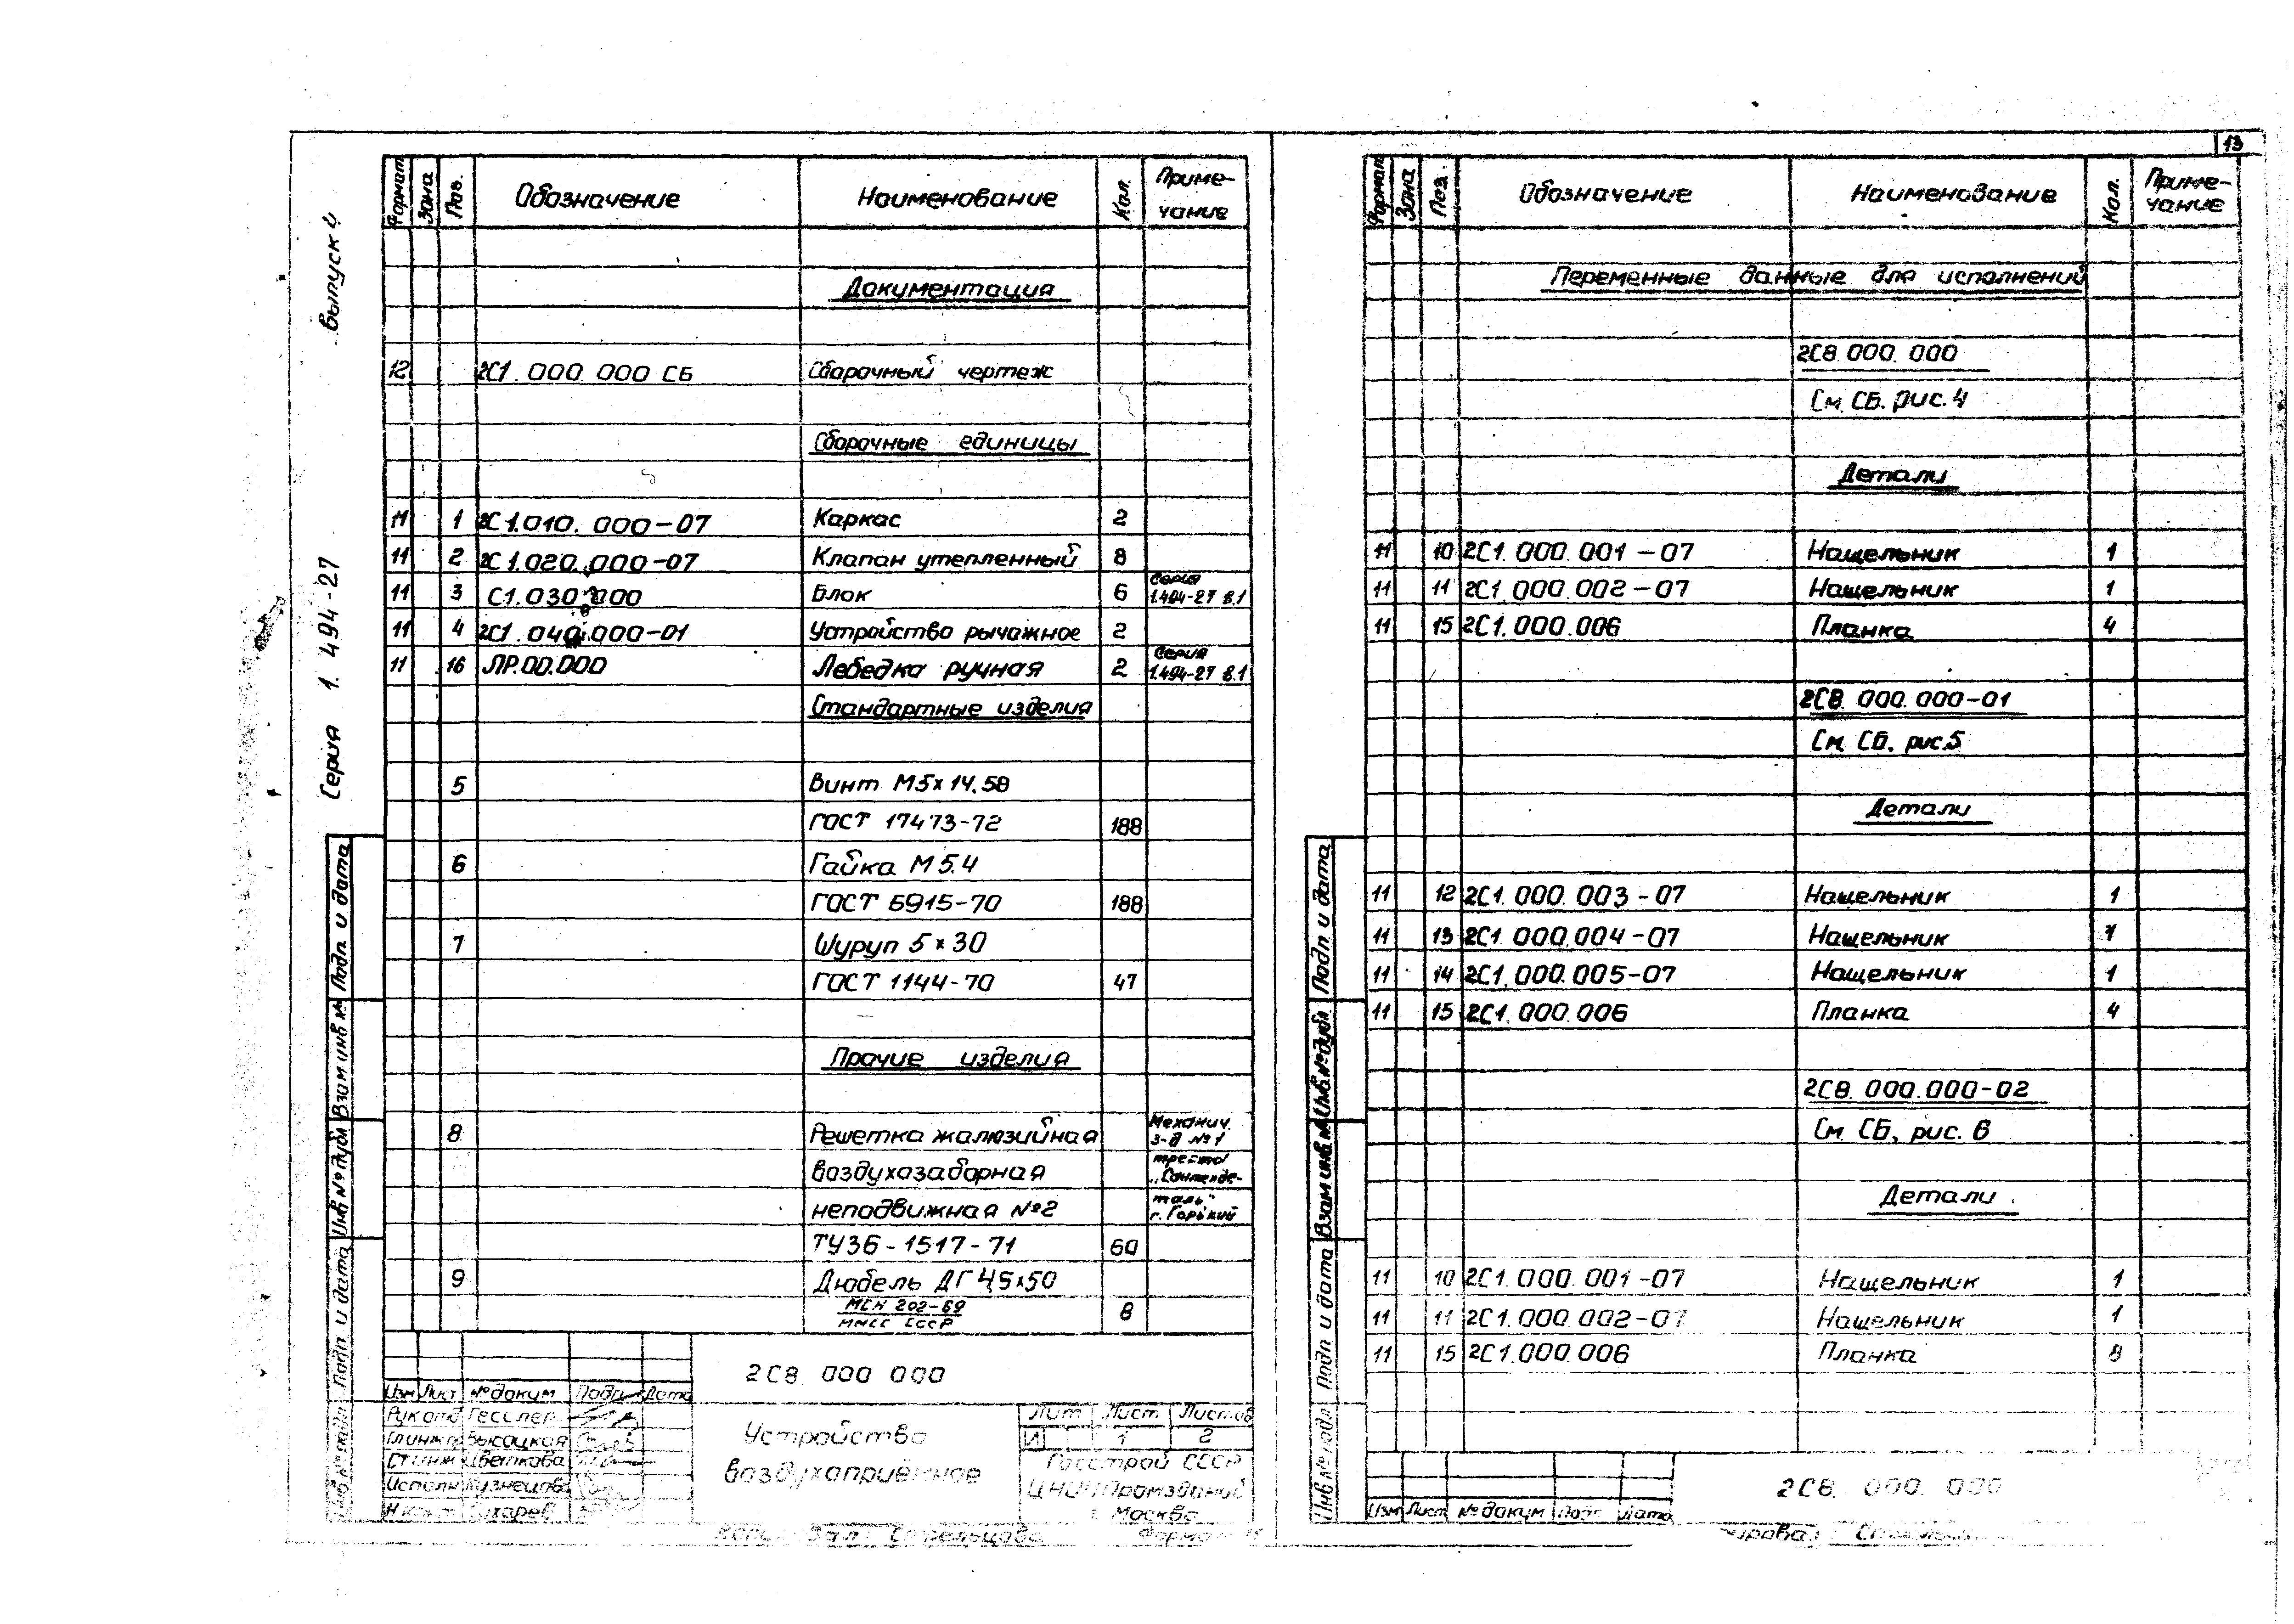 13
выпуск 4
Серия 1.494-27
Формат Зона Поз. Обозначение Наименование Кол. Приме-
чание
Документация
12 2С1.000.000 СБ Сборочный чертеж
Сборочные единицы
11 1 2С1.010.000-07 Каркас 2
11 2 2С1.020.000-07 Клапан утепленный 8
11 3 С1.030.000 Блок 6 Серия 1.494-27 в.1
11 4 2С1.040.000-01 Устройство рычажное 2
11 16 ЛР.00.000 Лебедка ручная 2 Серия 1.494-27 в.1
Стандартные изделия
5 Винт М5х14.58
ГОСТ 17473-72 188
6 Гайка М5.4
ГОСТ 5915-70 188
7 Шуруп 5х30
ГОСТ 1144-70 47
Прочие изделия
8 Решетка жалюзийная Механич. з-д №1
воздухозаборная треста „Сантехде-
неподвижная №2 таль" г. Горький
ТУ36-1517-71 60
9 Дюбель ДГ 4,5х50
МСН 202-69
ММСС СССР 8
Подп и дата
Взам инв №
Инв № дубл
Подп и дата
2С8.000 000
Изм Лист № докум Подп. Дата
Рук отд Гесслер
Гл инж пр Высоцкая
Ст инж Цветкова
Исполн Кузнецова
Н конт Сухарев
Устройство
воздухоприёмное
Лит Лист Листов
И 1 2
Госстрой СССР
ЦНИИПромзданий
г. Москва
Формат
Формат Зона Поз. Обозначение Наименование Кол. Приме-
чание
Переменные данные для исполнений
2С8.000.000
См. СБ. рис. 4
Детали
11 10 2С1.000.001-07 Нащельник 1
11 11 2С1.000.002-07 Нащельник 1
11 15 2С1.000.006 Планка 4
2С8.000.000-01
См. СБ. рис.5
Детали
11 12 2С1.000.003-07 Нащельник 1
11 13 2С1.000.004-07 Нащельник 1
11 14 2С1.000.005-07 Нащельник 1
11 15 2С1.000.006 Планка 4
2С8.000.000-02
См. СБ, рис. 6
Детали
11 10 2С1.000.001-07 Нащельник 1
11 11 2С1.000.002-07 Нащельник 1
11 15 2С1.000.006 Планка 8
Подп и дата
Инв № дубл
Взам инв №
Подп и дата
Инв № подл
Изм Лист № докум Подп Дата
2С8.000.000